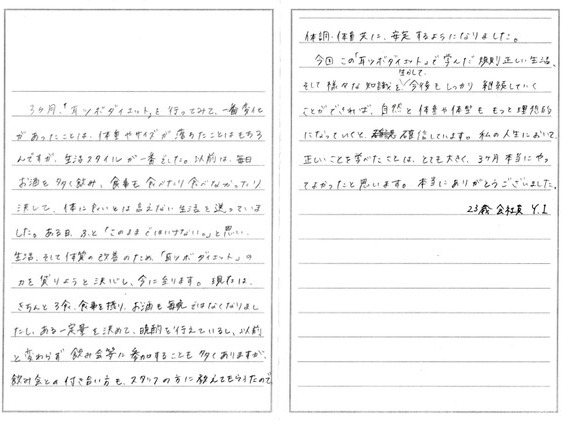 3ヶ月、「耳ツボダイエット」を行ってみて、一番変化
があったことは、体重やサイズが落ちたことはもちろ
んですが、生活スタイルが一番でした。以前は、毎日
お酒を多く飲み、食事も食べたり食べなかったり
決して、体に良いとは言えない生活を送っていま
した。ある日、ふと「このままではいけない。」と思い、
生活、そして体質の改善のため、「耳ツボダイエット」の
力を貸りようと決心し、今に至ります。現在は、
きちんと3食、食事を摂り、お酒も毎晩ではなくなりまし
たし、ある一定量を決めて、晩酌を行えているし、以前
と変わらず飲み会等に参加することも多くありますが、
飲み会との付き合い方も、スタッフの方に教えてもらうたので
体調・体重共に、安定するようになりました。
今回この「耳ツボダイエット」で学んだ規則正しい生活、
そして様々な知識を生かして、今後もしっかり継続していく
ことができれば、自然と体重や体型ももっと理想的
になっていくと、確信しています。私の人生において、
正しいことを学べたことは、とても大きく、3ヶ月本当にやっ
てよかったと思います。本当にありがとうございました。
23歳 会社員 Y.I